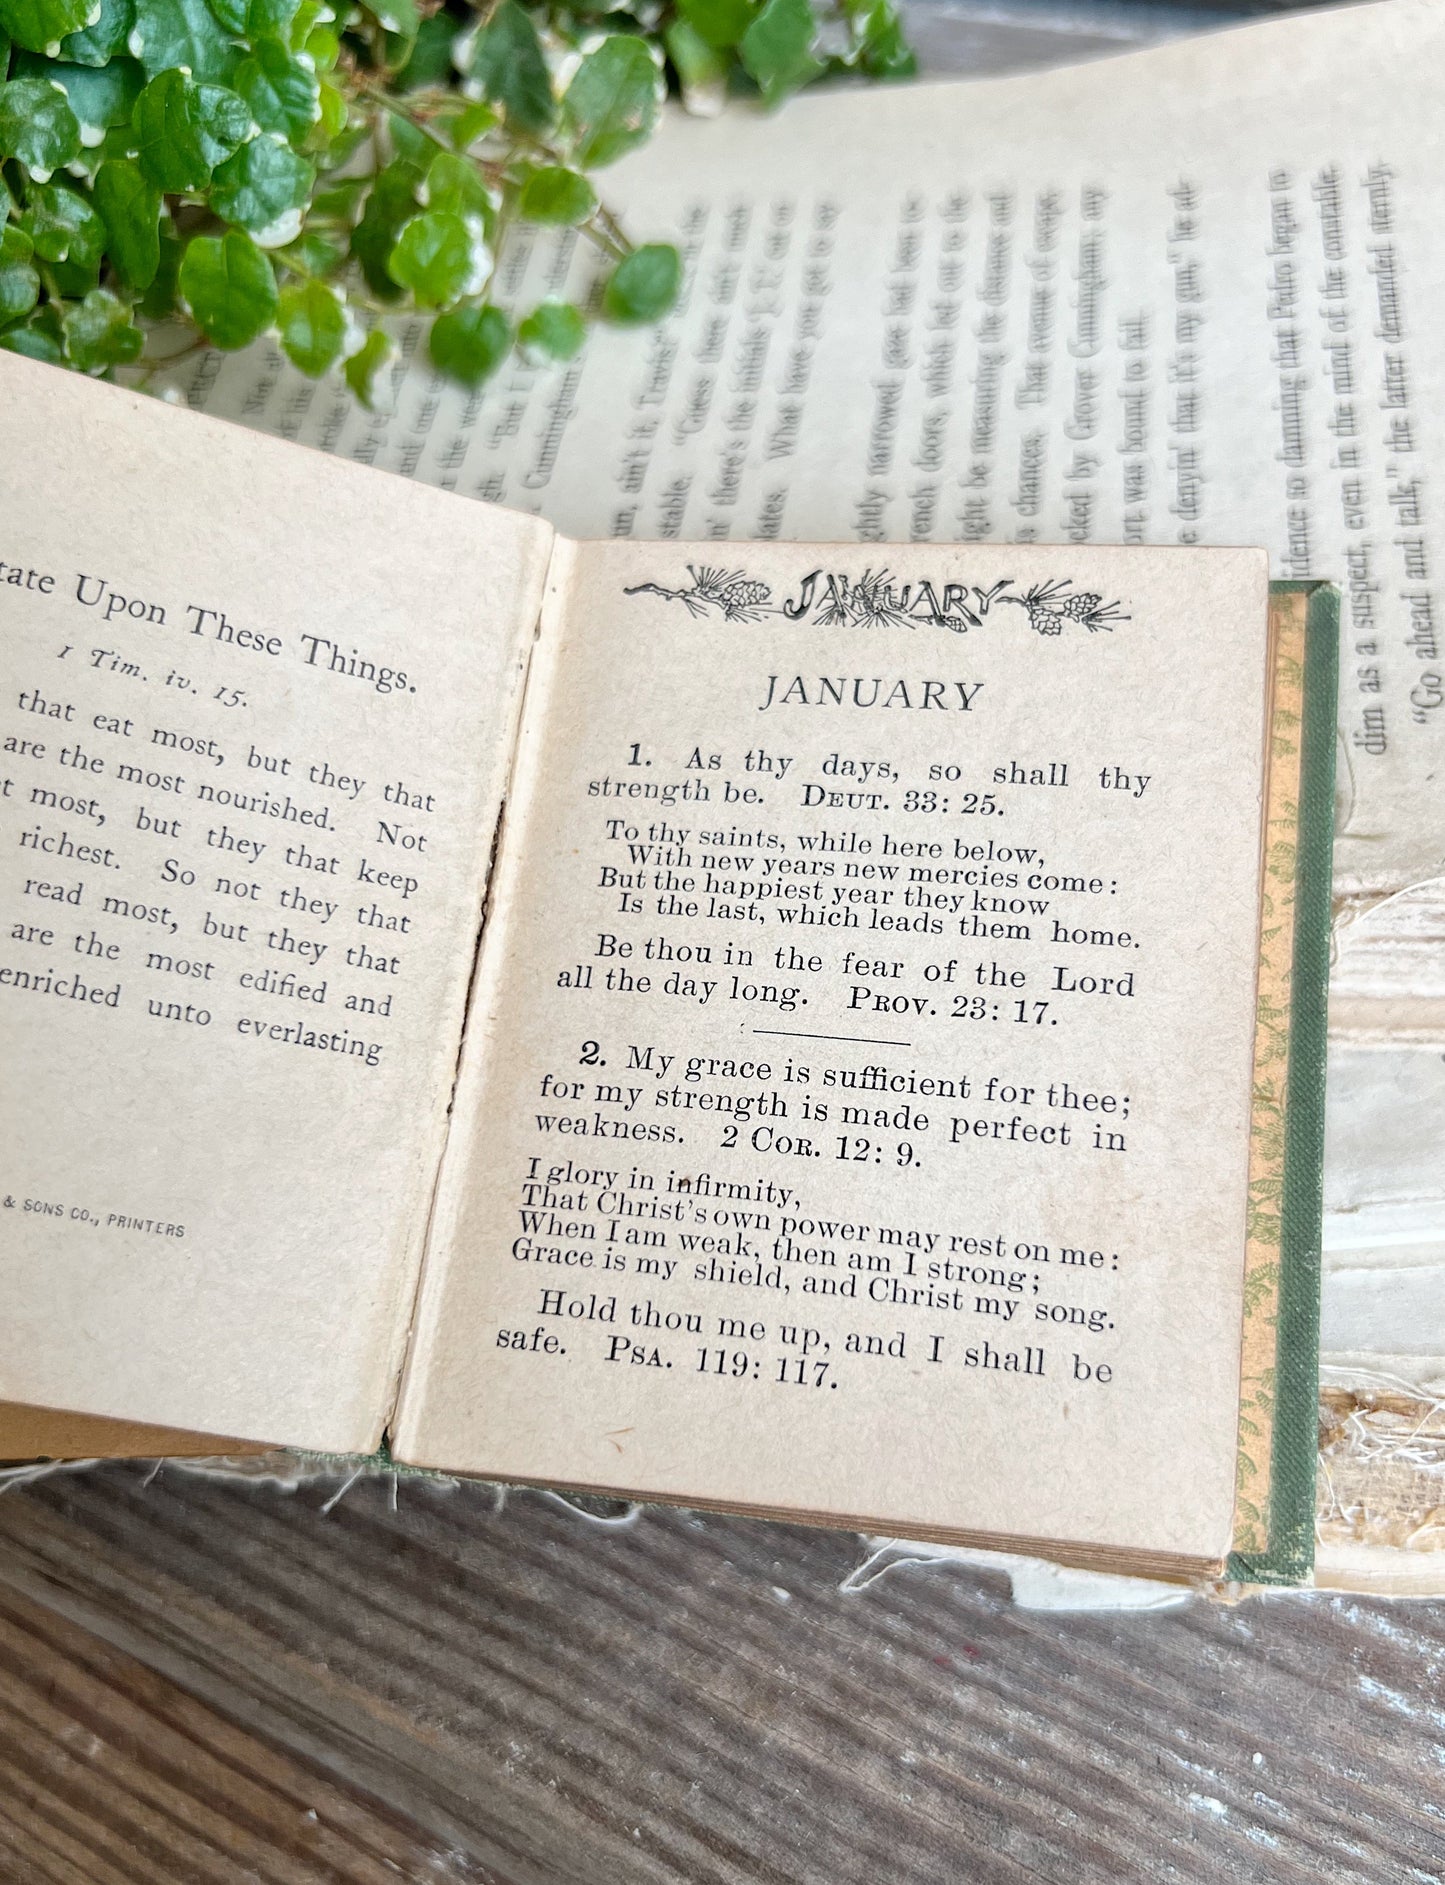 tate Upon These Things.
1 Tim. iv. 15.
that eat most, but they that
are the most nourished. Not
most, but they that keep
richest. So not they that
read most, but they that
are the most edified and
enriched unto everlasting
& SONS CO., PRINTERS
JANUARY
JANUARY
1. As thy days, so shall thy
strength be. DEUT. 33: 25.
To thy saints, while here below,
With new years new mercies come:
But the happiest year they know
Is the last, which leads them home.
Be thou in the fear of the Lord
all the day long. PROV. 23: 17.
2. My grace is sufficient for thee;
for my strength is made perfect in
weakness. 2 COR. 12: 9.
I glory in infirmity,
That Christ's own power may rest on me:
When I am weak, then am I strong;
Grace is my shield, and Christ my song.
Hold thou me up, and I shall be
safe. PSA. 119: 117.
un, ain't it, Travis?"
stable. "Guess there ain't much
n' there's the initials 
lates. What have you got to say
ghtly narrowed gaze had been
rench doors, which led out to the
ight be measuring the distance and
is chances. That avenue of escape
cked by Grover Cunningham; any
ort was bound to fail.
e denyin' that it's my gun," he
idence so damning that Pedro began to
dim as a suspect, even in the mind of the constable.
"Go ahead and talk," the latter demanded sternly,